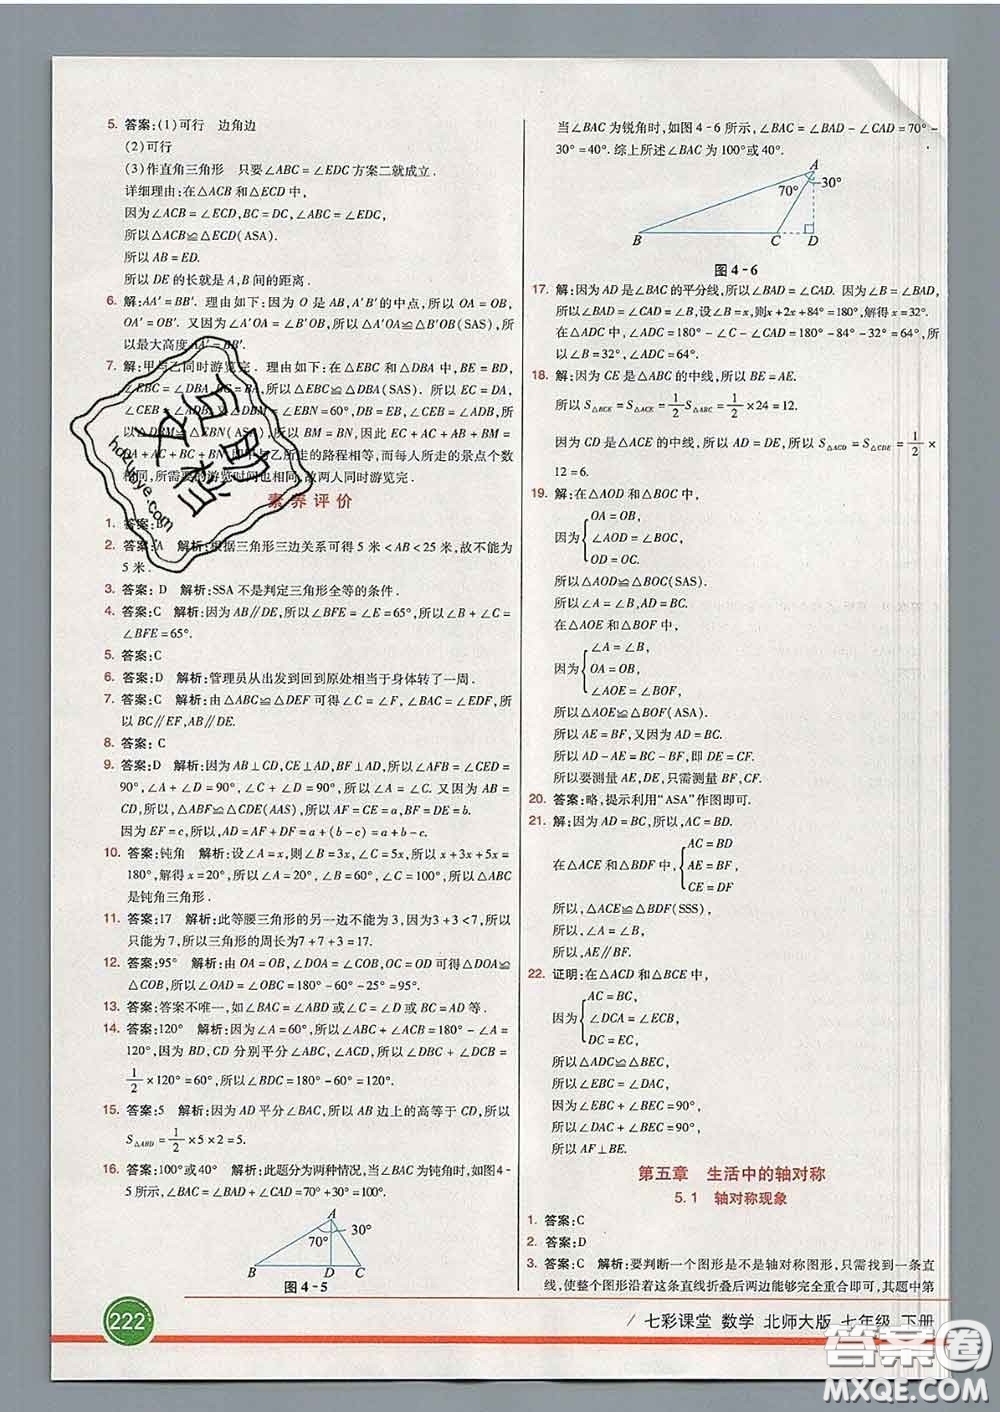 5. 答案:(1)可行 边角边
(2)可行
(3)作直角三角形 只要∠ABC=∠EDC 方案二就成立.
详细理由:在△ABC 和△EDC 中,
因为∠ACB=∠ECD,BC=DC,∠ABC=∠EDC,
所以△ACB≌△ECD(ASA).
所以 AB=ED.
所以 DE 的长就是 A,B 间的距离.
6. 解:AA′=BB′. 理由如下:因为 O 是 AB,A′B′的中点,所以 OA=OB,
OA′=OB′. 又因为∠A′OA=∠B′OB,所以△A′OA≌△B′OB(SAS),所
以最大高度 AA′=BB′.
7. 解:甲与乙同时游览完. 理由如下:在△EBC 和△DBA 中,BE=BD,
∠EBC=∠DBA,BC=BA,所以△EBC≌△DBA(SAS). 所以 EC=DA,
∠CEB=∠ADB. 又∠DBM=∠EBN=60°,DB=EB,∠CEB=∠ADB,所
以△DBM≌△EBN,所以 BM=BN,因此 EC+AC+AB+BM=
DA+AC+BC+BN,即甲与乙所走的路程相等,而每人所走的景点个数
相同,所需要的游览时间也相同,故两人同时游览完.
素养评价
1. 答案:B
2. 答案:A 解析:根据三角形三边关系可得 5 米<AB<25 米,故不能为
5 米.
3. 答案: D 解析:SSA 不是判定三角形全等的条件.
4. 答案:C 解析:因为 AB∥DE,所以∠BFE=∠E=65°,所以∠B+∠C=
∠BFE=65°.
5. 答案:C
6. 答案:D 解析:管理员从出发到回到原处相当于身体转了一周.
7. 答案:C 解析:由△ABC≌△DEF 可得∠C=∠F,∠BAC=∠EDF,所
以 BC∥EF,AB∥DE.
8. 答案: C
9. 答案:D 解析:因为 AB⊥CD,CE⊥AD,BF⊥AD,所以∠AFB=∠CED=
90°,∠A+∠D=90°,∠C+∠D=90°,所以∠A=∠C. 又因为 AB=
CD,所以△ABF≌△CDE(AAS),所以 AF=CE=a,BF=DE=b.
因为 EF=c,所以,AD=AF+DF=a+(b-c)=a+b-c.
10. 答案:钝角 解析:设∠A=x,则∠B=3x,∠C=5x,所以 x+3x+5x=
180°,解得 x=20°,所以∠A=20°,∠B=60°,∠C=100°,所以△ABC
是钝角三角形.
11. 答案:17 解析:此等腰三角形的另一边不能为 3,因为 3+3<7,所以
只能为 7,所以三角形的周长为 7+7+3=17.
12. 答案:95° 解析:由 OA=OB,∠DOA=∠COB,OC=OD 可得△DOA≌
△COB,所以∠OAD=∠OBC=180°-60°-25°=95°.
13. 答案:答案不唯一,如∠BAC=∠ABD 或∠C=∠D 或 BC=AD 等.
14. 答案:120° 解析:因为∠A=60°,所以∠ABC+∠ACB=180°-∠A=
120°,因为 BD,CD 分别平分∠ABC,∠ACD,所以∠DBC+∠DCB=
1/2×120°=60°,所以∠BDC=180°-60°=120°.
15. 答案:5 解析:因为 AD 平分∠BAC,所以 AB 边上的高等于 CD,所以
S△ABD=1/2×5×2=5.
16. 答案:100°或40° 解析:此题分为两种情况,当∠BAC 为钝角时,如图4-
5所示,∠BAC=∠BAD+∠CAD=70°+30°=100°.
A
70° 30°
B D C
图4-5
当∠BAC 为锐角时,如图4-6所示,∠BAC=∠BAD-∠CAD=70°-
30°=40°. 综上所述∠BAC 为100°或40°.
A
70° 30°
B C D
图4-6
17. 解:因为 AD 是∠BAC 的平分线,所以∠BAD=∠CAD. 因为∠B=∠BAD,
所以∠BAD=∠CAD=∠B,设∠B=x,则x+2x+84°=180°,解得x=32°.
在△ADC 中,∠ADC=180°-∠C-∠CAD=180°-84°-32°=64°,
所以∠B=32°,∠ADC=64°.
18. 解:因为 CE 是△ABC 的中线,所以 BE=AE.
所以 S△BCE=S△ACE=1/2S△ABC=1/2×24=12.
因为 CD 是△ACE 的中线,所以 AD=DE,所以 S△ACD=S△CDE=1/2×
12=6.
19. 解:在△AOD 和△BOC 中,
OA=OB,
因为 ∠AOD=∠BOC,
OD=OC.
所以△AOD≌△BOC(SAS).
所以∠A=∠B,AD=BC.
在△AOE 和△BOF 中,
∠A=∠B,
因为 OA=OB,
∠AOE=∠BOF,
所以△AOE≌△BOF(ASA).
所以 AE=BF,又因为 AD=BC.
所以 AD-AE=BC-BF,即 DE=CF.
所以要测量 AE,DE,只需测量 BF,CF.
20. 答案:略,提示利用“ASA”作图即可.
21. 解:因为 AD=BC,所以,AC=BD.
AC=BD
在△ACE 和△BDF 中, AE=BF,
CE=DF
所以,△ACE≌△BDF(SSS),
所以,∠A=∠B,
所以,AE∥BF.
22. 证明:在△ACD 和△BCE 中,
AC=BC,
因为 ∠DCA=∠ECB,
DC=EC,
所以△ADC≌△BEC,
所以∠EBC=∠DAC,
因为∠EBC+∠BEC=90°,
所以∠DAC+∠BEC=90°,
所以 AF⊥BE.
第五章 生活中的轴对称
5.1 轴对称现象
1. 答案:C
2. 答案:D
3. 答案:C 解析:要判断一个图形是不是轴对称图形,只需找到一条直
线,使整个图形沿着这条直线折叠后两边能够完全重合即可,其题中第
222
/ 七彩课堂 数学 北师大版 七年级 下册
答案圈
MXQE.COM